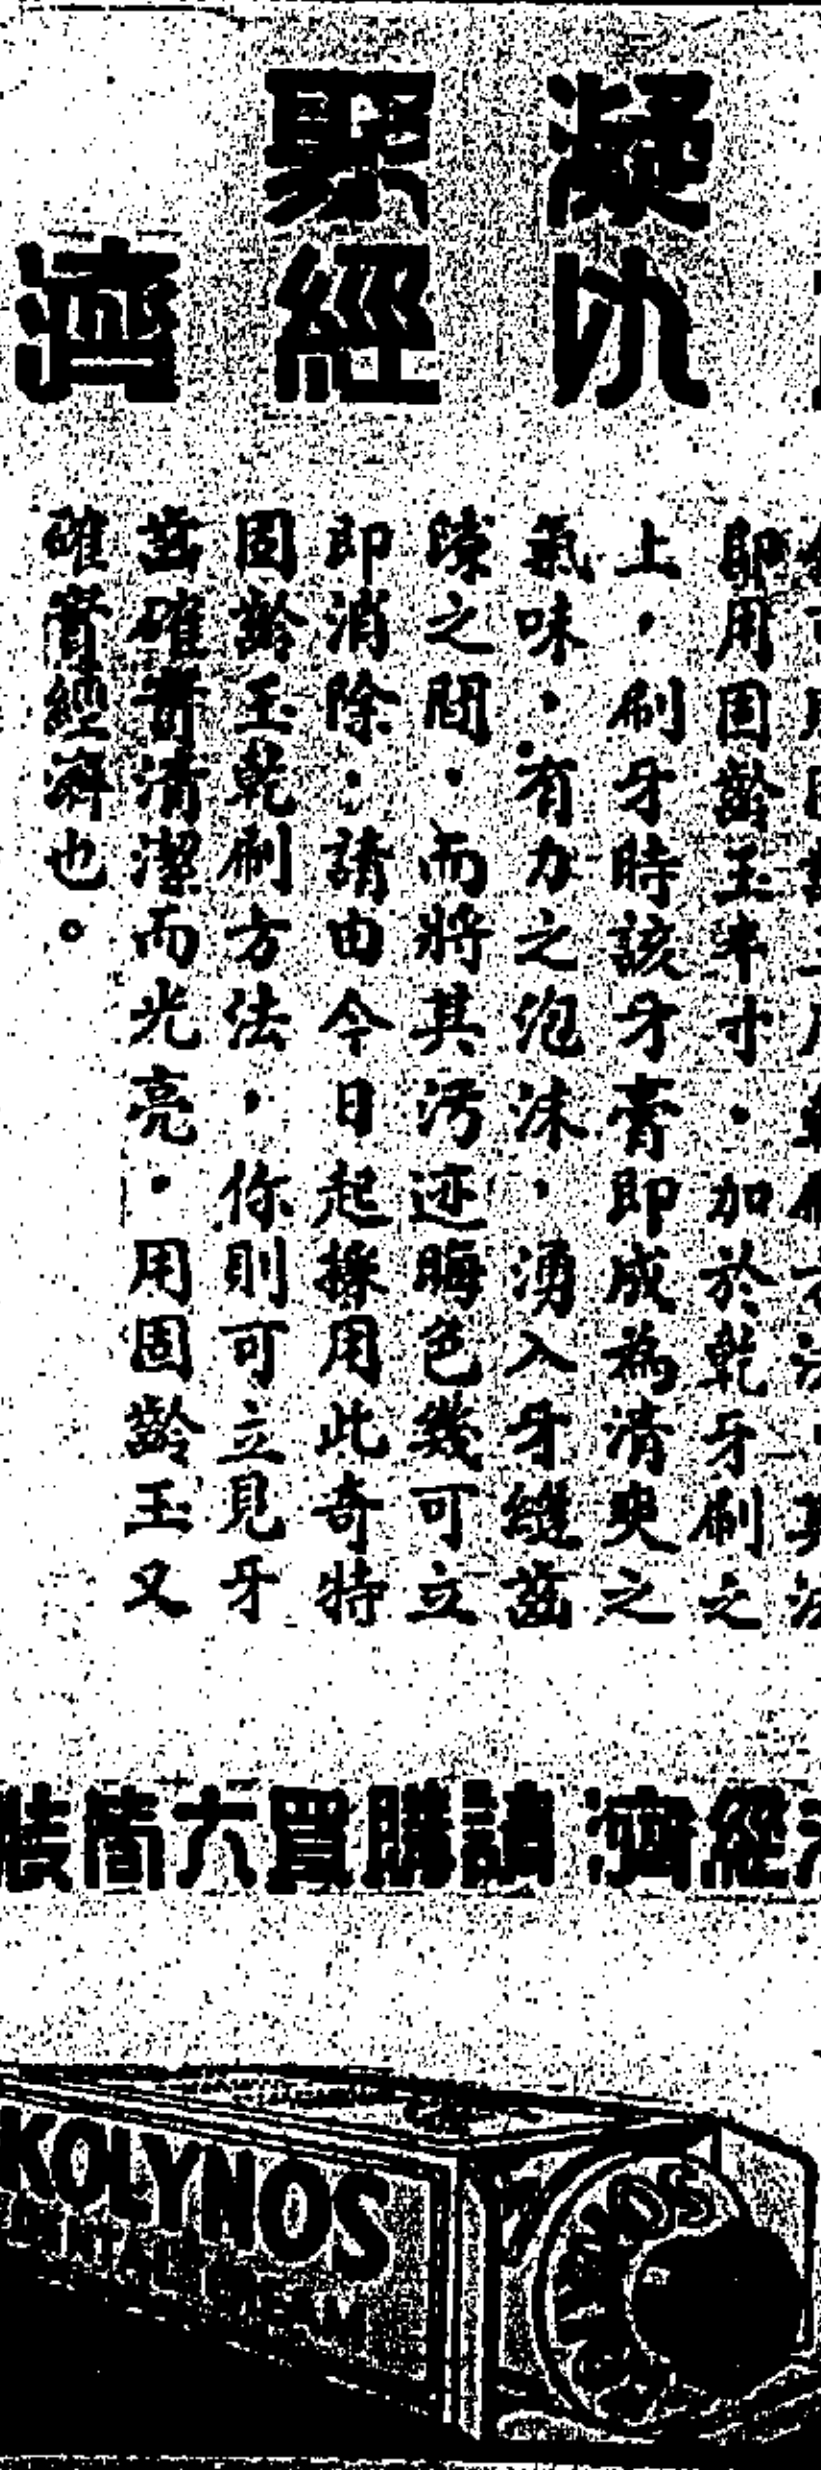 凝聚
仇經濟
即用固齡玉半寸．加於乾牙刷之
上，刷牙時該牙膏即成為清爽之
氣味，有力之泡沫，湧入牙縫齒
隙之間．而將其污迹晦色幾可立
即消除．請由今日起採用此奇特
固齡玉乾刷方法，你則可立見牙
齒確實清潔而光亮．用固齡玉又
確實經濟也。
經濟 請購買大筒裝
KOLYNOS
DENTAL CREAM